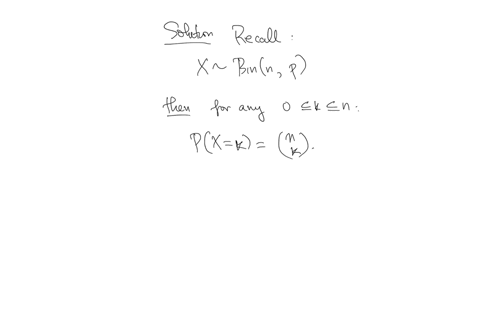 Solution Recall:
X ~ Bin(n, p)
then for any 0 ≤ k ≤ n:
P(X=k) = (n k).